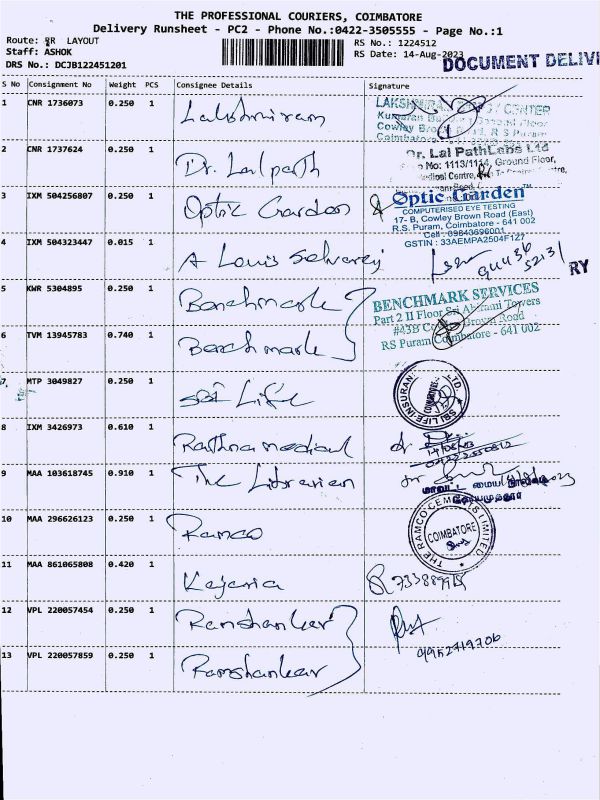 THE PROFESSIONAL COURIERS, COIMBATORE
Delivery Runsheet - PC2 - Phone No.:0422-3505555 - Page No.:1
Route: RR LAYOUT
RS No.: 1224512
Staff: ASHOK
RS Date: 14-Aug-2023
DOCUMENT DELIV
DRS No.: DCJB122451201
S No Consignment No Weight PCS Consignee Details Signature
1 CNR 1736073 0.250 1 Lakshmiram
CENTER
Cowley Brown R S Puram
Coimbatore
2 CNR 1737624 0.250 1 Dr. Lalpath
Dr. Lal PathLabs Ltd
No: 1113/1114, Ground Floor,
3 IXM 504256807 0.250 1 Optic Garden
Optic Garden™
COMPUTERISED EYE TESTING
17- B, Cowley Brown Road (East)
R.S. Puram, Coimbatore - 641 002
Cell : 09843696001
GSTIN : 33AEMPA2504F127
4 IXM 504323447 0.015 1 A Louis Selvaraj
RY
5 KWR 5304895 0.250 1 Benchmark
BENCHMARK SERVICES
Part 2 II Floor Sri Abirami Towers
#43B Cowley Brown Road
RS Puram Coimbatore - 641 002
6 TVM 13945783 0.740 1 Benchmark
7 MTP 3049827 0.250 1 SBI Life
SBI LIFE INSURANCE LTD.
8 IXM 3426973 0.610 1 Rathna medical
9 MAA 103618745 0.910 1 The Librarian
மாவட்ட மைய
10 MAA 296626123 0.250 1 Ramco
THE RAMCO CEMENTS LIMITED
COIMBATORE
11 MAA 861065808 0.420 1 Kajaria
12 VPL 220057454 0.250 1 Ramshankar
9952719706
13 VPL 220057859 0.250 1 Ramshankar